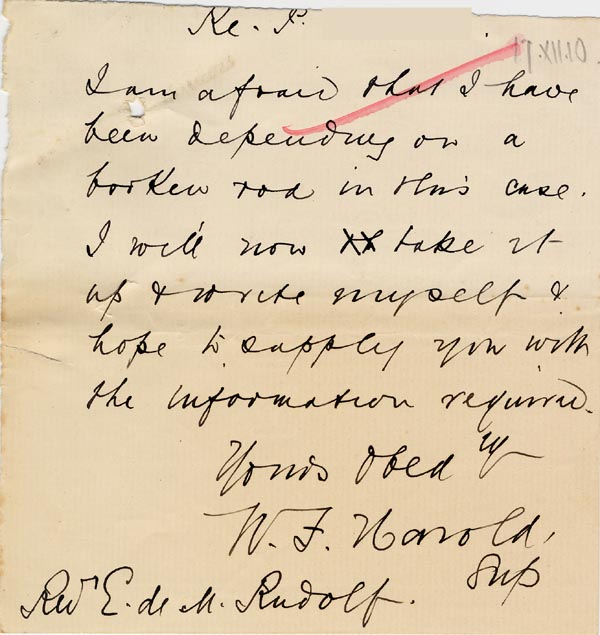 Re. P.
I am afraid that I have
been depending on a
broken rod in this case.
I will now take it
up & write myself &
hope to supply you with
the information required.
Yours Obed ly
W. F. Harold,
Sup
Revd E. de M. Rudolf.